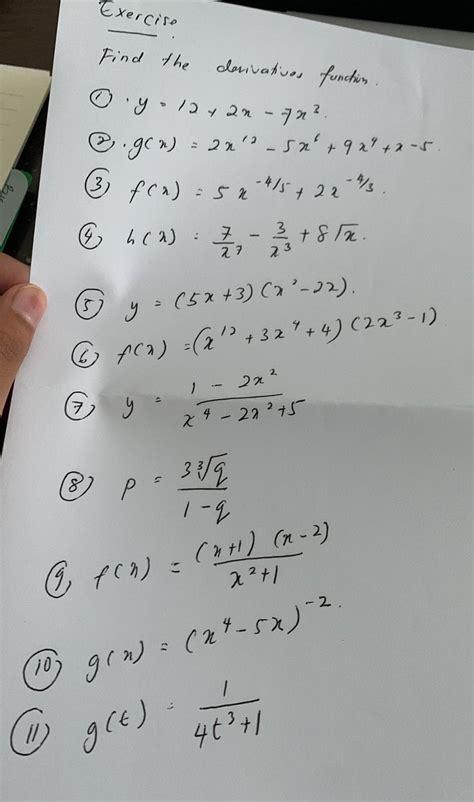 Exercise.
Find the derivatives function.
① . y = 12 + 2x - 7x³.
② . g(x) = 2x¹² - 5x⁶ + 9x⁴ + x - 5.
③ f(x) = 5x^-4/5 + 2x^-4/3.
④ h(x) = 7/x⁷ - 3/x³ + 8√x.
⑤ y = (5x+3)(x² - 2x).
⑥ f(x) = (x¹² + 3x⁴ + 4)(2x³ - 1)
⑦ y = 1 - 2x² / x⁴ - 2x² + 5
⑧ p = 3∛q / 1 - q
⑨ f(x) = (x+1) (x-2) / x² + 1
⑩ g(x) = (x⁴ - 5x)^-2.
⑪ g(t) = 1 / 4t³ + 1